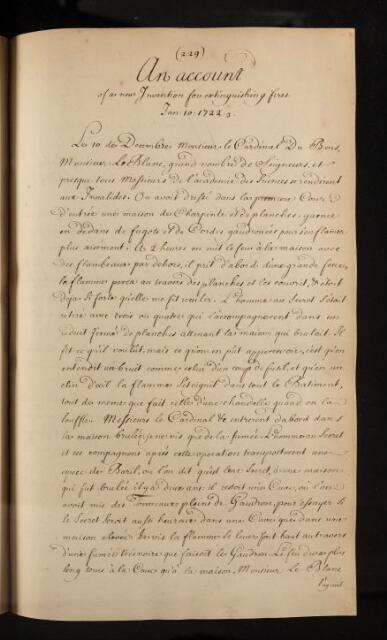 (229)
An account
of a new Invention for extinguishing fires
Jan. 10. 1722/3.
Le 10 de Decembre Monsieur le Cardinal Du Bois,
Monsieur Le Blanc, grand nombre de Seigneurs, et
presque tous Messieurs de l'academie des sciences se rendirent
aux Invalides. On avoit dressé dans la premiere Cour
d'entrée une maison de Charpente et de planches, garnie
en dedans de fagots et de Cordes gaudronées pour s'enflamer
plus aisement. A 2 heures on mit le feu à la maison avec
des flambeaux par dehors, il prit d'abord d'une grande force,
la flamme perça au travers des planches et les couvrit, & étoit
deja si forte qu'elle me fit reculer. L'homme au Secret s'étoit
retiré avec trois ou quatre qui l'accompagnoient dans un
réduit fermé de planches attenant la maison qui bruloit. Il
fit ce qu'il voulut, mais ce qu'on en pût appercevoir, c'est qu'on
entendit un bruit comme celui d'un coup de fusil, et qu'en un
clin d'œil la flamme s'eteignit dans tout le Batiment,
tout de meme que fait celle d'une chandelle quand on la
souffle. Messieurs le Cardinal &c entrerent d'abord dans
la maison brulée, je ne vis que de la fumée. L'homme au Secret
et ses compagnons après cette operation transporterent une
espece de Baril, où l'on dit qu'est leur Secret, à une maison
qui fut brulée il y a deux ans: il restoit une Cave, où l'on
avoit mis des Tonneaux pleins de Gaudron, pour essayer si
le Secret seroit aussi heureux dans une Cave que dans une
maison elevée. Je vis la flamme se lever fort haut au travers
d'une fumée très noire que faisoit le Gaudron. Le feu dura plus
long tems à la Cave qu'à la maison. Monsieur Le Blanc